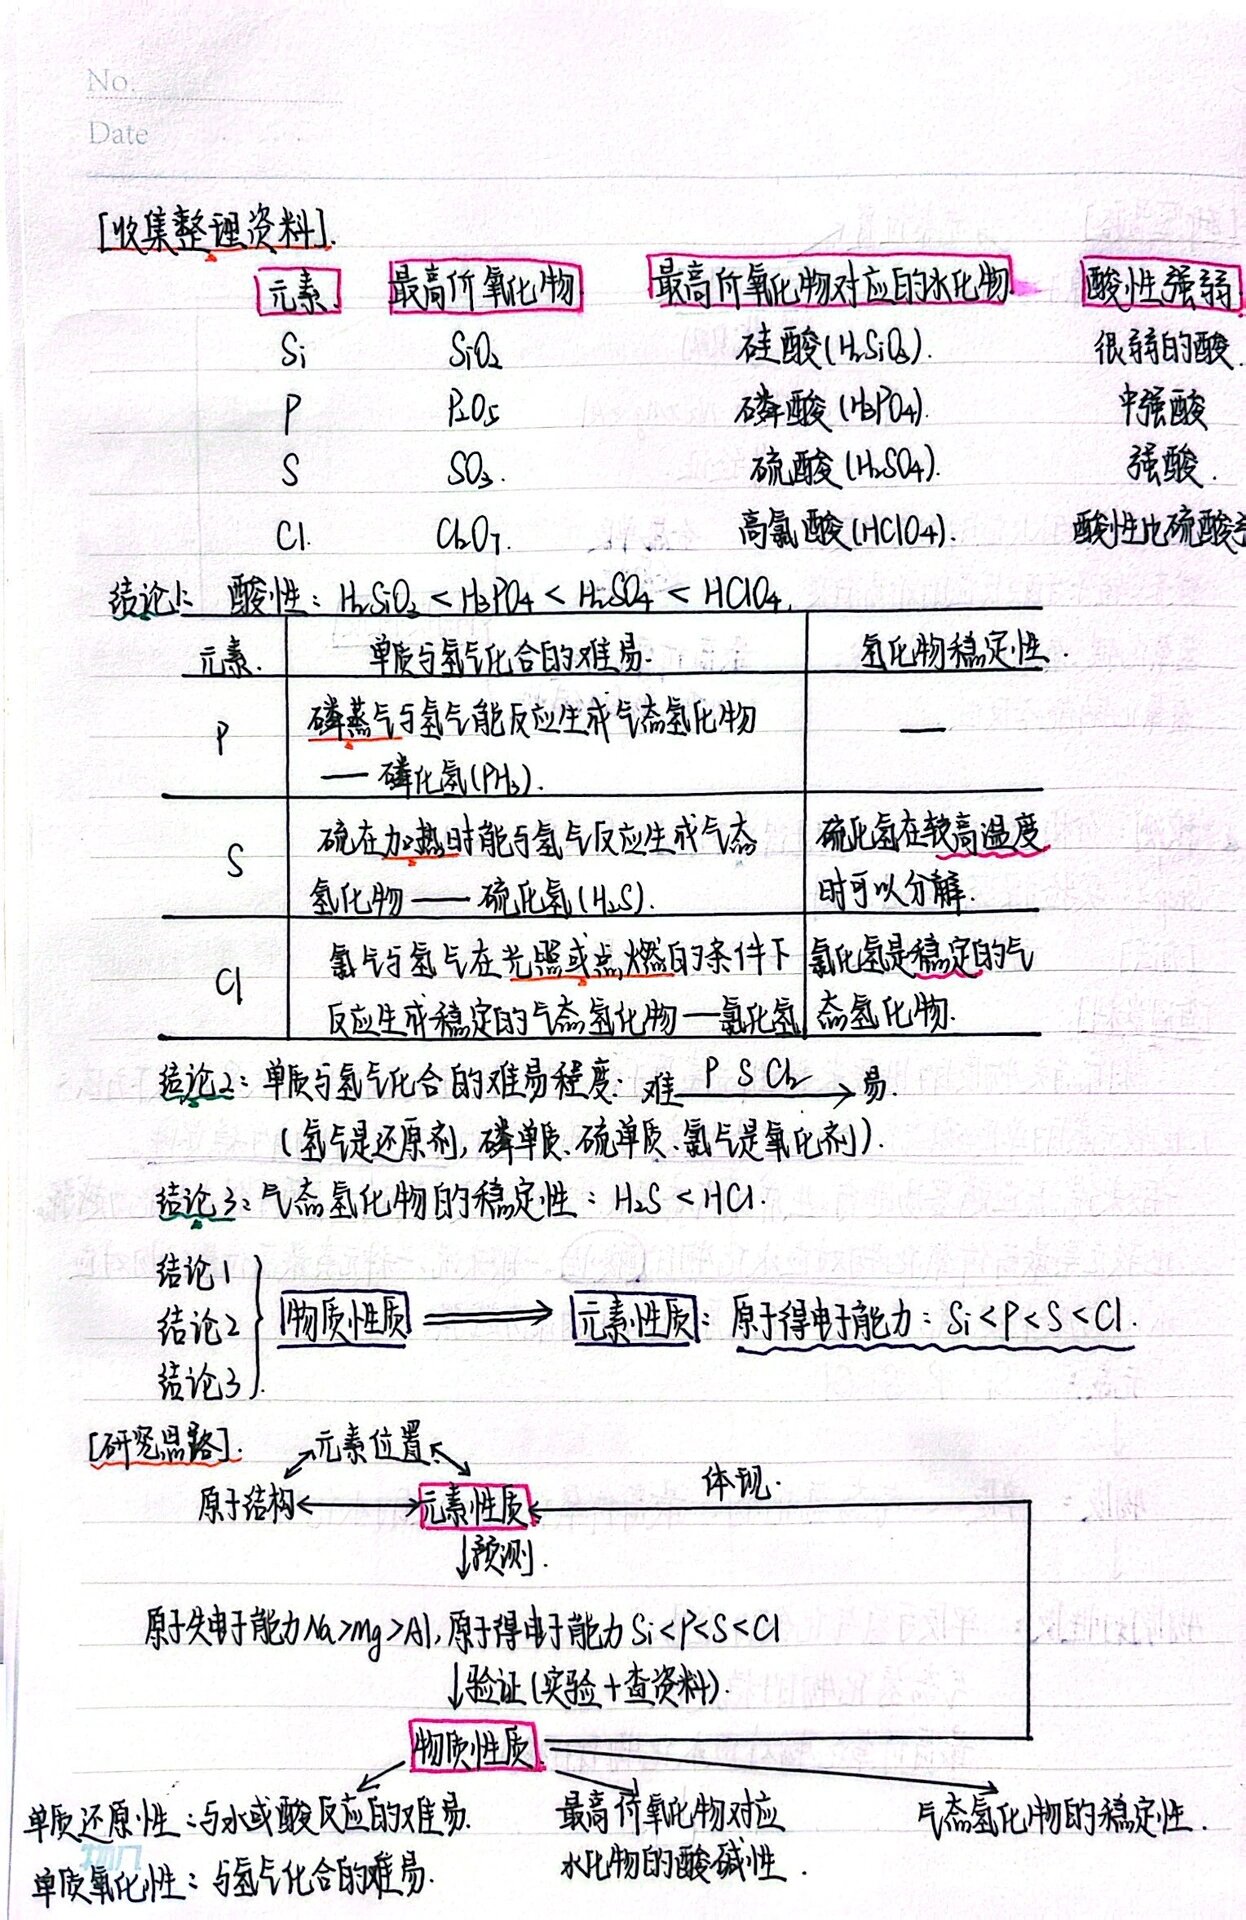 No.
Date
[收集整理资料].
元素 最高价氧化物 最高价氧化物对应的水化物 酸性强弱
Si SiO₂ 硅酸(H₂SiO₃). 很弱的酸.
P P₂O₅ 磷酸(H₃PO₄). 中强酸
S SO₃. 硫酸(H₂SO₄). 强酸.
Cl. Cl₂O₇. 高氯酸(HClO₄). 酸性比硫酸
结论1: 酸性: H₂SiO₃ < H₃PO₄ < H₂SO₄ < HClO₄.
元素. 单质与氢气化合的难易. 氢化物稳定性.
P 磷蒸气与氢气能反应生成气态氢化物 —
— 磷化氢(PH₃).
S 硫在加热时能与氢气反应生成气态 硫化氢在较高温度
氢化物 — 硫化氢(H₂S). 时可以分解.
Cl 氯气与氢气在光照或点燃的条件下 氯化氢是稳定的气
反应生成稳定的气态氢化物—氯化氢 态氢化物.
结论2: 单质与氢气化合的难易程度: 难 P S Cl₂ → 易.
(氢气是还原剂, 磷单质、硫单质、氯气是氧化剂).
结论3: 气态氢化物的稳定性: H₂S < HCl.
结论1
结论2 物质性质 ⟹ 元素性质: 原子得电子能力: Si<P<S<Cl.
结论3
[研究思路]. 元素位置
体现.
原子结构 ↔ 元素性质
↓预测.
原子失电子能力Na>Mg>Al, 原子得电子能力 Si<P<S<Cl
↓验证(实验+查资料).
物质性质
单质还原性: 与水或酸反应的难易. 最高价氧化物对应 气态氢化物的稳定性.
单质氧化性: 与氢气化合的难易. 水化物的酸碱性.